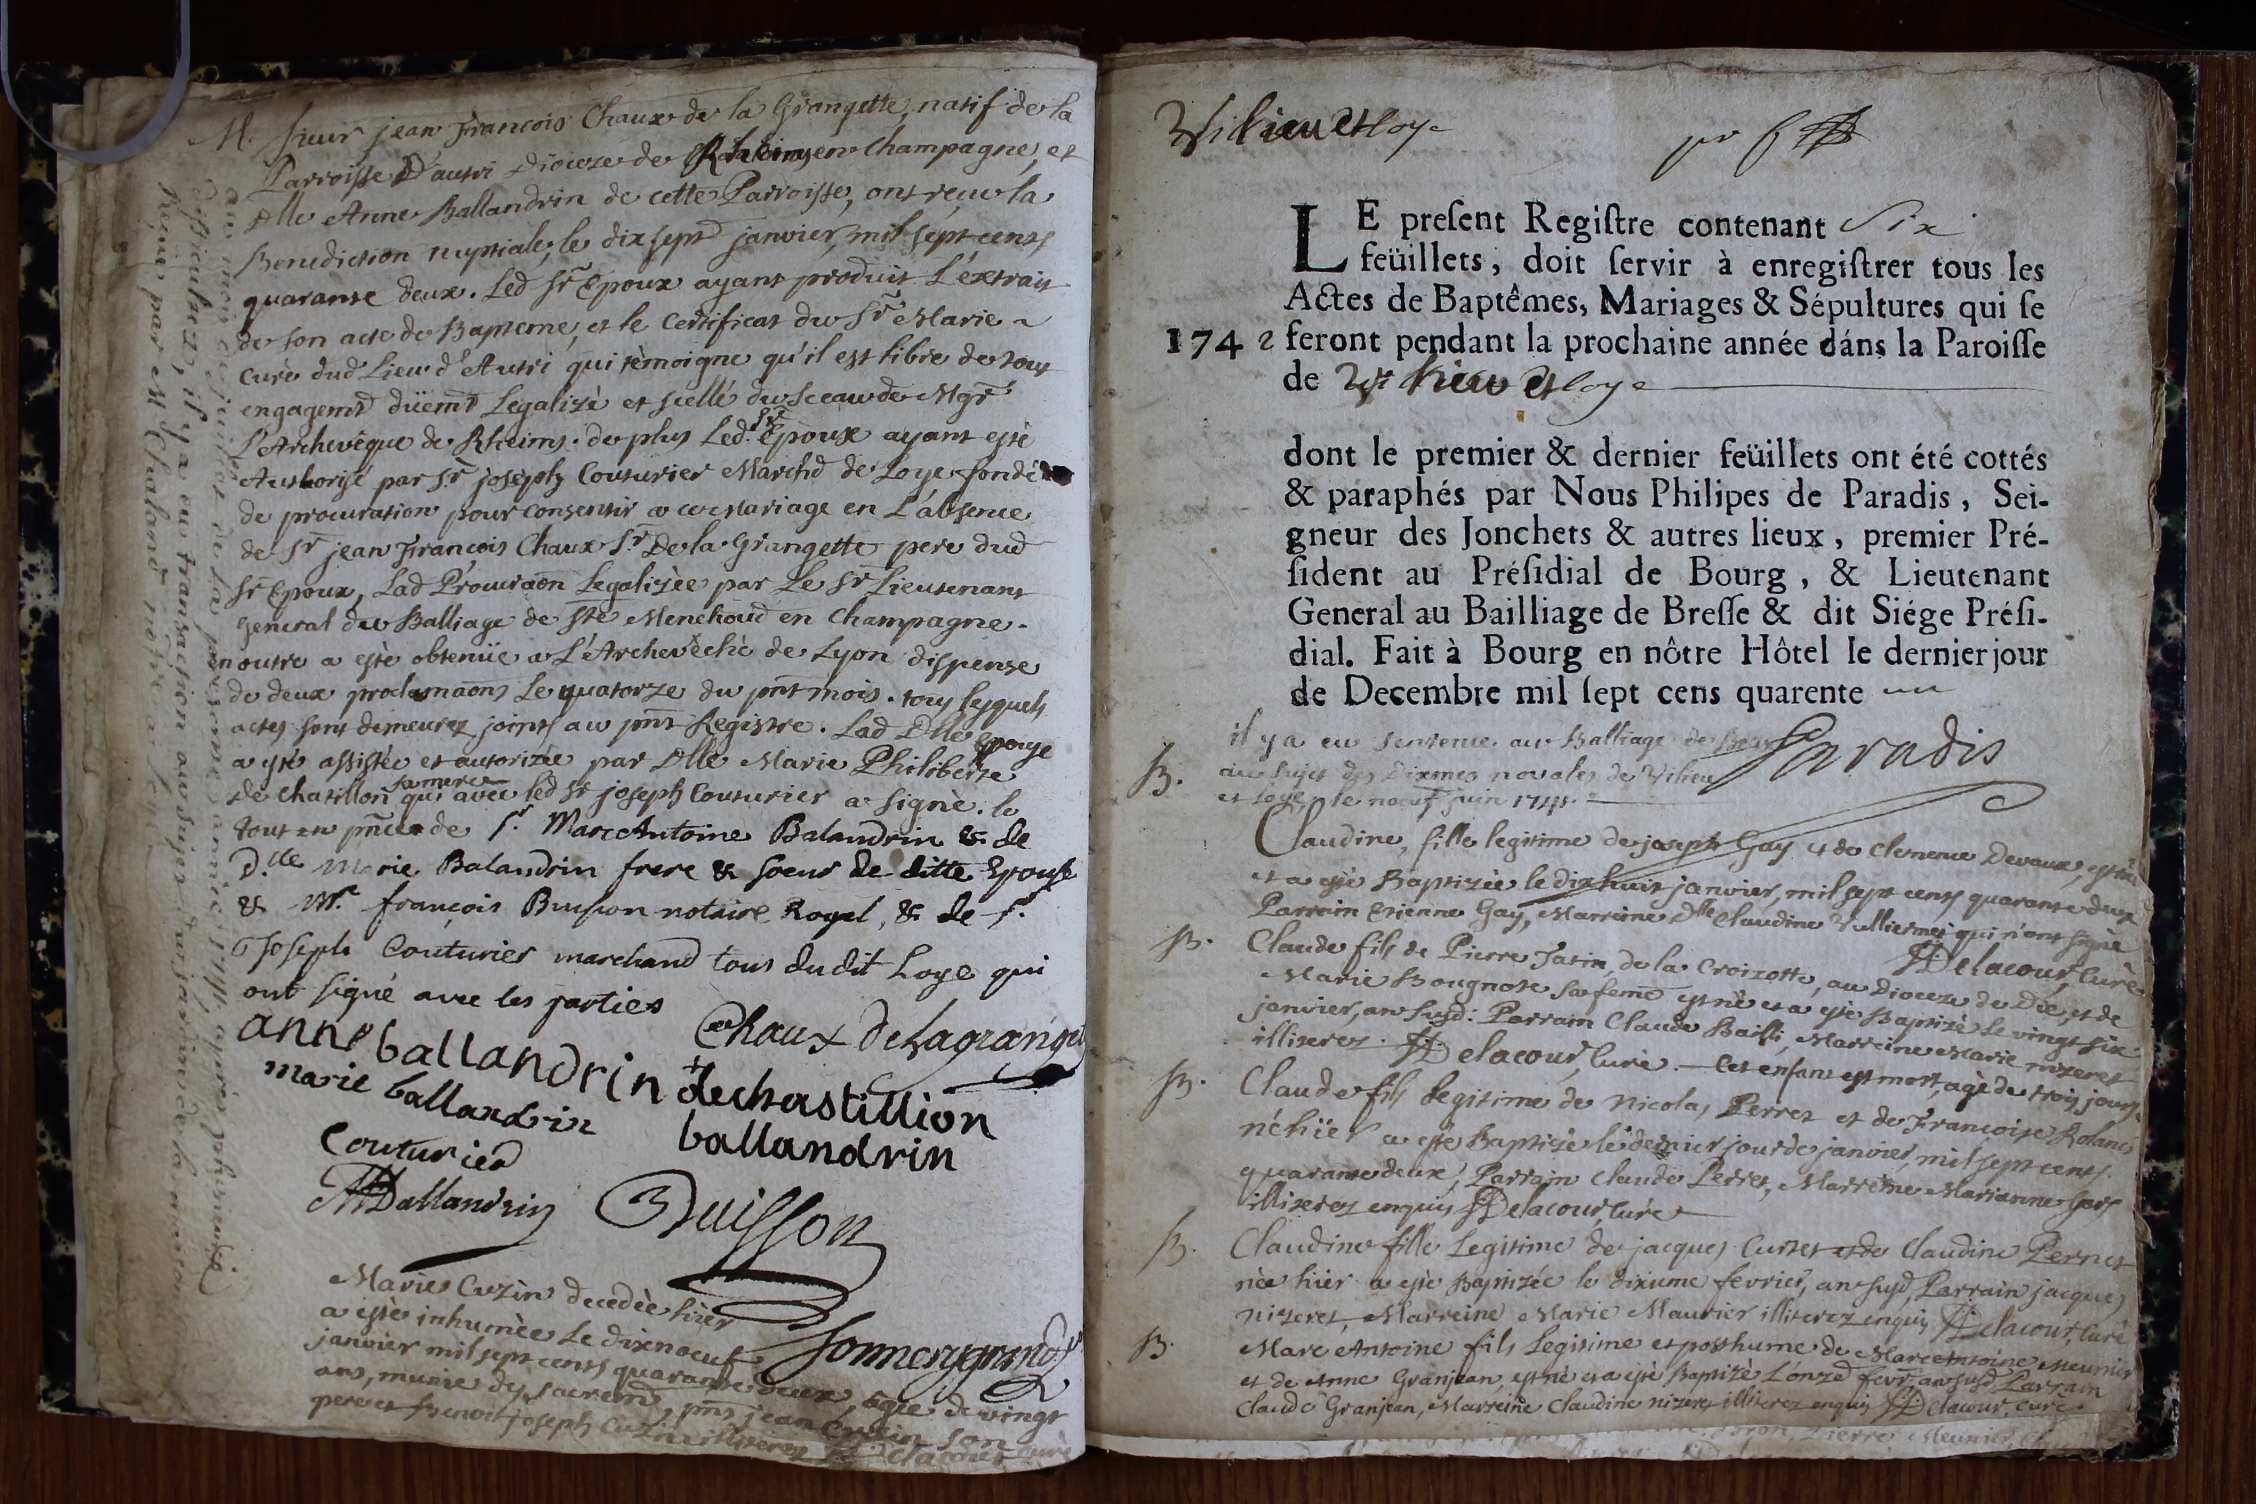 M. Sieur jean François Chaux de la Grangette, natif de la
Parroisse D'autri Diocese de Rheims en Champagne, et
Dlle Anne Ballandrin de cette Parroisse, ont reçu la
Benediction nuptiale, le dix sept janvier, mil sept cents
quarante deux. Led Sr Epoux ayant produit L'extrait
de son acte de Bapteme, et le Certificat du Sr Marie
curé dud Lieu d'Autri qui témoigne qu'il est libre de tout
engagemt düemt Legalizé et scellé du Sceau de Mgr
L'Archevêque de Rheims. de plus Led. Sr Epoux ayant esté
Authorisé par Sr joseph Couturier Marchd de Loye fondé
de procuration pour consentir a ce Mariage en L'absence
de Sr jean François Chaux Sr De la Grangette pere dud
Sr Epoux, Lad Procuraon Legalizée par Le Sr Lieutenant
General du Balliage de Ste Menehoud en Champagne.
en outre a esté obtenüe a L'Archevêché de Lyon dispense
de deux proclamaons Le quatorze du pnt mois. tous lesquels
actes sont demeurez joints au pnt Registre. Lad Dlle Epouse
a esté assistée et autorizée par Dlle Marie Philiberte
de Chatillon sa mere qui avec led Sr joseph Couturier a signé. le
tout en pnce de Sr. Marc Antoine Balandrin & de
D.lle Marie Balandrin frere & soeur de ditte Epouse
& Mr. françois Buisson notaire Royal, & de Sr.
Joseph Couturier marchand tous du dit Loye qui
ont signé avec les parties
Chaux de Lagranget
anne ballandrin
dechastillion
marie ballandrin
ballandrin
Couturier
MBallandrin
Buisson
Sonnerygrand
Marie Cuzin decedée hier
a esté inhumée Le dixnoeuf
janvier mil sept cents quarante deux, agée de vingt
ans, munie des sacremt, pnts jean Cuzin son
pere et Benoit joseph Cuzin illiterez Delacour curé
au mois de juillet de la presente année 1741 après plusieurs
difficultez, il y a eu transaction au sujet
Reçue par Me Chaland notre a
Vilieu et Loye
pr f
LE preſent Regiſtre contenant Six
feüillets, doit ſervir à enregiſtrer tous les
Actes de Baptêmes, Mariages & Sépultures qui ſe
1742 feront pendant la prochaine année dáns la Paroiſſe
de Vilieu et Loye
dont le premier & dernier feüillets ont été cottés
& paraphés par Nous Philipes de Paradis, Sei-
gneur des Jonchets & autres lieux, premier Pré-
ſident au Préſidial de Bourg, & Lieutenant
General au Bailliage de Breſſe & dit Siége Préſi-
dial. Fait à Bourg en nôtre Hôtel le dernier jour
de Decembre mil ſept cens quarente un
Paradis
il y a eu Sentence au Balliage de
au sujet des Dixmes novales de Vilieu
et Loye, le noeuf juin 1741.
B. Claudine, fille legitime de joseph Gay & de Clemence Devaux, est née
et a esté Baptizée le dix huit janvier, mil sept cents quarante deux
Parrain Etienne Gay, Marreine Dlle Claudine Vulliermet qui n'ont signé
Delacour, curé
B. Claude fils de Pierre Jatin, de la Croizette, au Diocese de Die, et de
Marie Bougnote sa feme est né et a esté Baptizé Le vingt six
janvier, an susd: Parrain Claude Bailli, Marreine Marie nizeret
illiterez. Delacour, curé. Cet enfant est mort, agé de trois jours.
B. Claude fils legitime de Nicolas Perret et de Francoise Roland
né hier a esté Baptizé le dernier jour de janvier, mil sept cents
quarante deux, Parrain Claude Perret, Marreine Marianne Gay
illiterez enquis Delacour, curé
B. Claudine fille Legitime de jacques Curtet et de Claudine Pernet
née hier a esté Baptizée le dixieme fevrier, an susd, Parrain jacques
nizeret, Marreine Marie Maurier illiterez enquis Delacour, curé
B. Marc Antoine fils Legitime et posthume de Marc Antoine Meunier
et de Anne Granjean, est né et a esté Baptizé L'onze fevr: an susd, Parrain
Claude Granjean, Marreine Claudine nizeret illiterez enquis Delacour, curé
Pierre Meunier